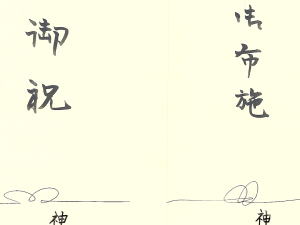 御祝
神
御布施
神